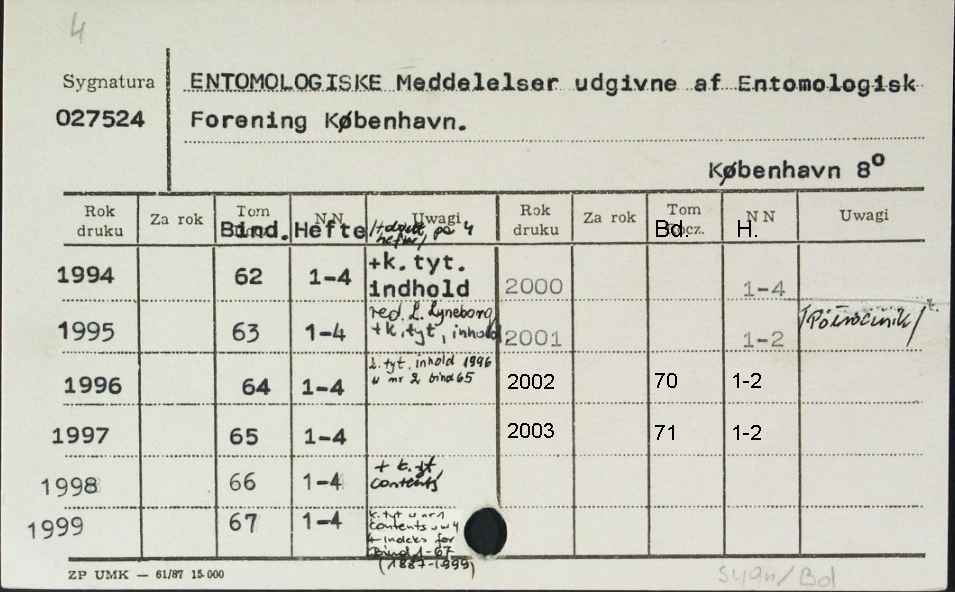 4
Sygnatura
027524
ENTOMOLOGISKE Meddelelser udgivne af Entomologisk
Forening København.
København 8°
Rok druku Za rok Tom N N Uwagi Rok druku Za rok Tom Rocz. N N Uwagi
Bind. Hefte på 4 Bd. H.
1994 62 1-4 +k.tyt. indhold 2000 1-4
1995 63 1-4 red. L. Lyneborg + k.tyt, inhold 2001 1-2 /Półrocznik/
1996 64 1-4 k. tyt. inhold 1996 w nr 2 bind 65 2002 70 1-2
1997 65 1-4 2003 71 1-2
1998 66 1-4 + k. tyt, contents
1999 67 1-4 k. tyt w nr 1 contents w 4 + indeks for Bind 1-67 (1887-1999)
ZP UMK — 61/87 15.000
sygn/Bd